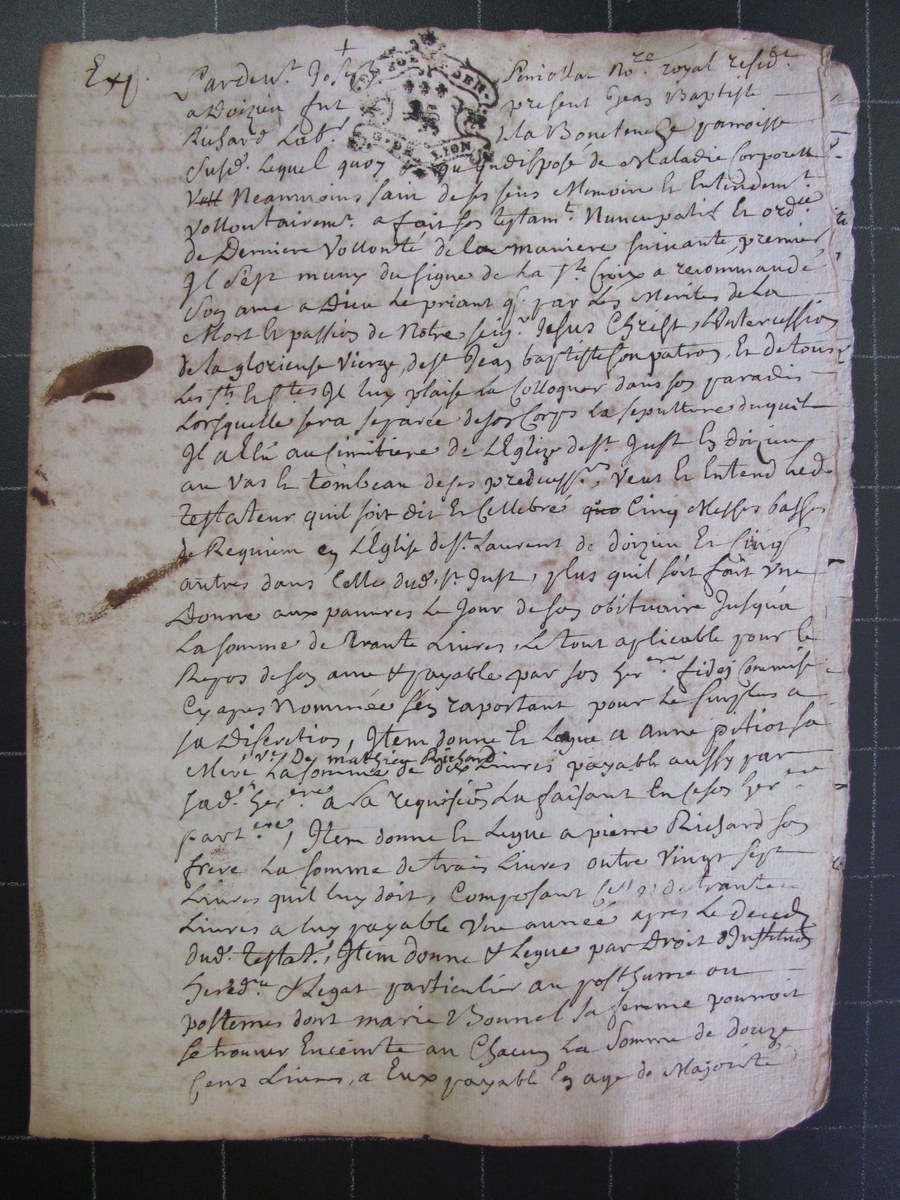 Exp.
Pardev.t Joseph Peniollat No.re royal resid.t
a Doizieu fut present Jean Baptiste
Richard Lab.r la Bonetenche parroisse
GEN SOLS DER
G. DE LION
Susd. Lequel quoy qu'indisposé de Maladie Corporelle
Neanmoins sain de ses sens Memoire Et Entendem.t
vollontairem.t a fait son testam.t Nuncupatif Et ord.ce
de Derniere Vollonté de la maniere suivante, premier
Il S'est muny du signe de la s.te Croix a recommandé
Son ame a Dieu Le priant q. par Les Merites de La
Mort Et passion de Notre seig.r Jesus Christ, L'intercession
de la glorieuse vierge, de s.t Jean baptiste son patron, Et de tous
Les s.ts Et s.tes Il luy plaise La Colloquer dans son paradis
Lorsquelle sera separée de son Corps La sepulture duquel
Il a Elû au Cimitiere de L'Eglize de s.t Just En doizieu
au vas Et tombeau de ses predecess.rs, veut Et Entend led.
testateur quil soit dit Et Cellebré Cinq Messes basses
de Requiem en L'Eglise de s.t Laurent de doizieu Et Cinq
autres dans Celle dud. s.t Just, plus quil soit fait une
Donne aux pauvres Le Jour de son obituaire Jusqu'a
La somme de Trante Livres, Le tout aplicable pour le
Repos de son ame & payable par son her.ere fidei Commise
Cy apres Nommée s'en raportant pour le surplus a
sa Discretion, Item donne Et Legue a anne pitiot sa
Mere v.e De mathieu Richard La somme de dix Livres payable aussy par
sad. her.ere a sa requision La faisant En ce son her.ere
part.ere, Item donne Et Legue a pierre Richard son
frere La somme de trois Livres outre vingt sept
Livres quil luy doit, Composant de trante
Livres a luy payable Une année apres Le Deceds
dud. testat.r, Item donne & Legue par Droit d'Institution
hered.re & Legat particulier au posthume ou
postemes dont marie Bonnel sa femme pourroit
se trouver Enceinte au Chacun La Somme de douze
Cens Livres, a Eux payable En age de Majorité